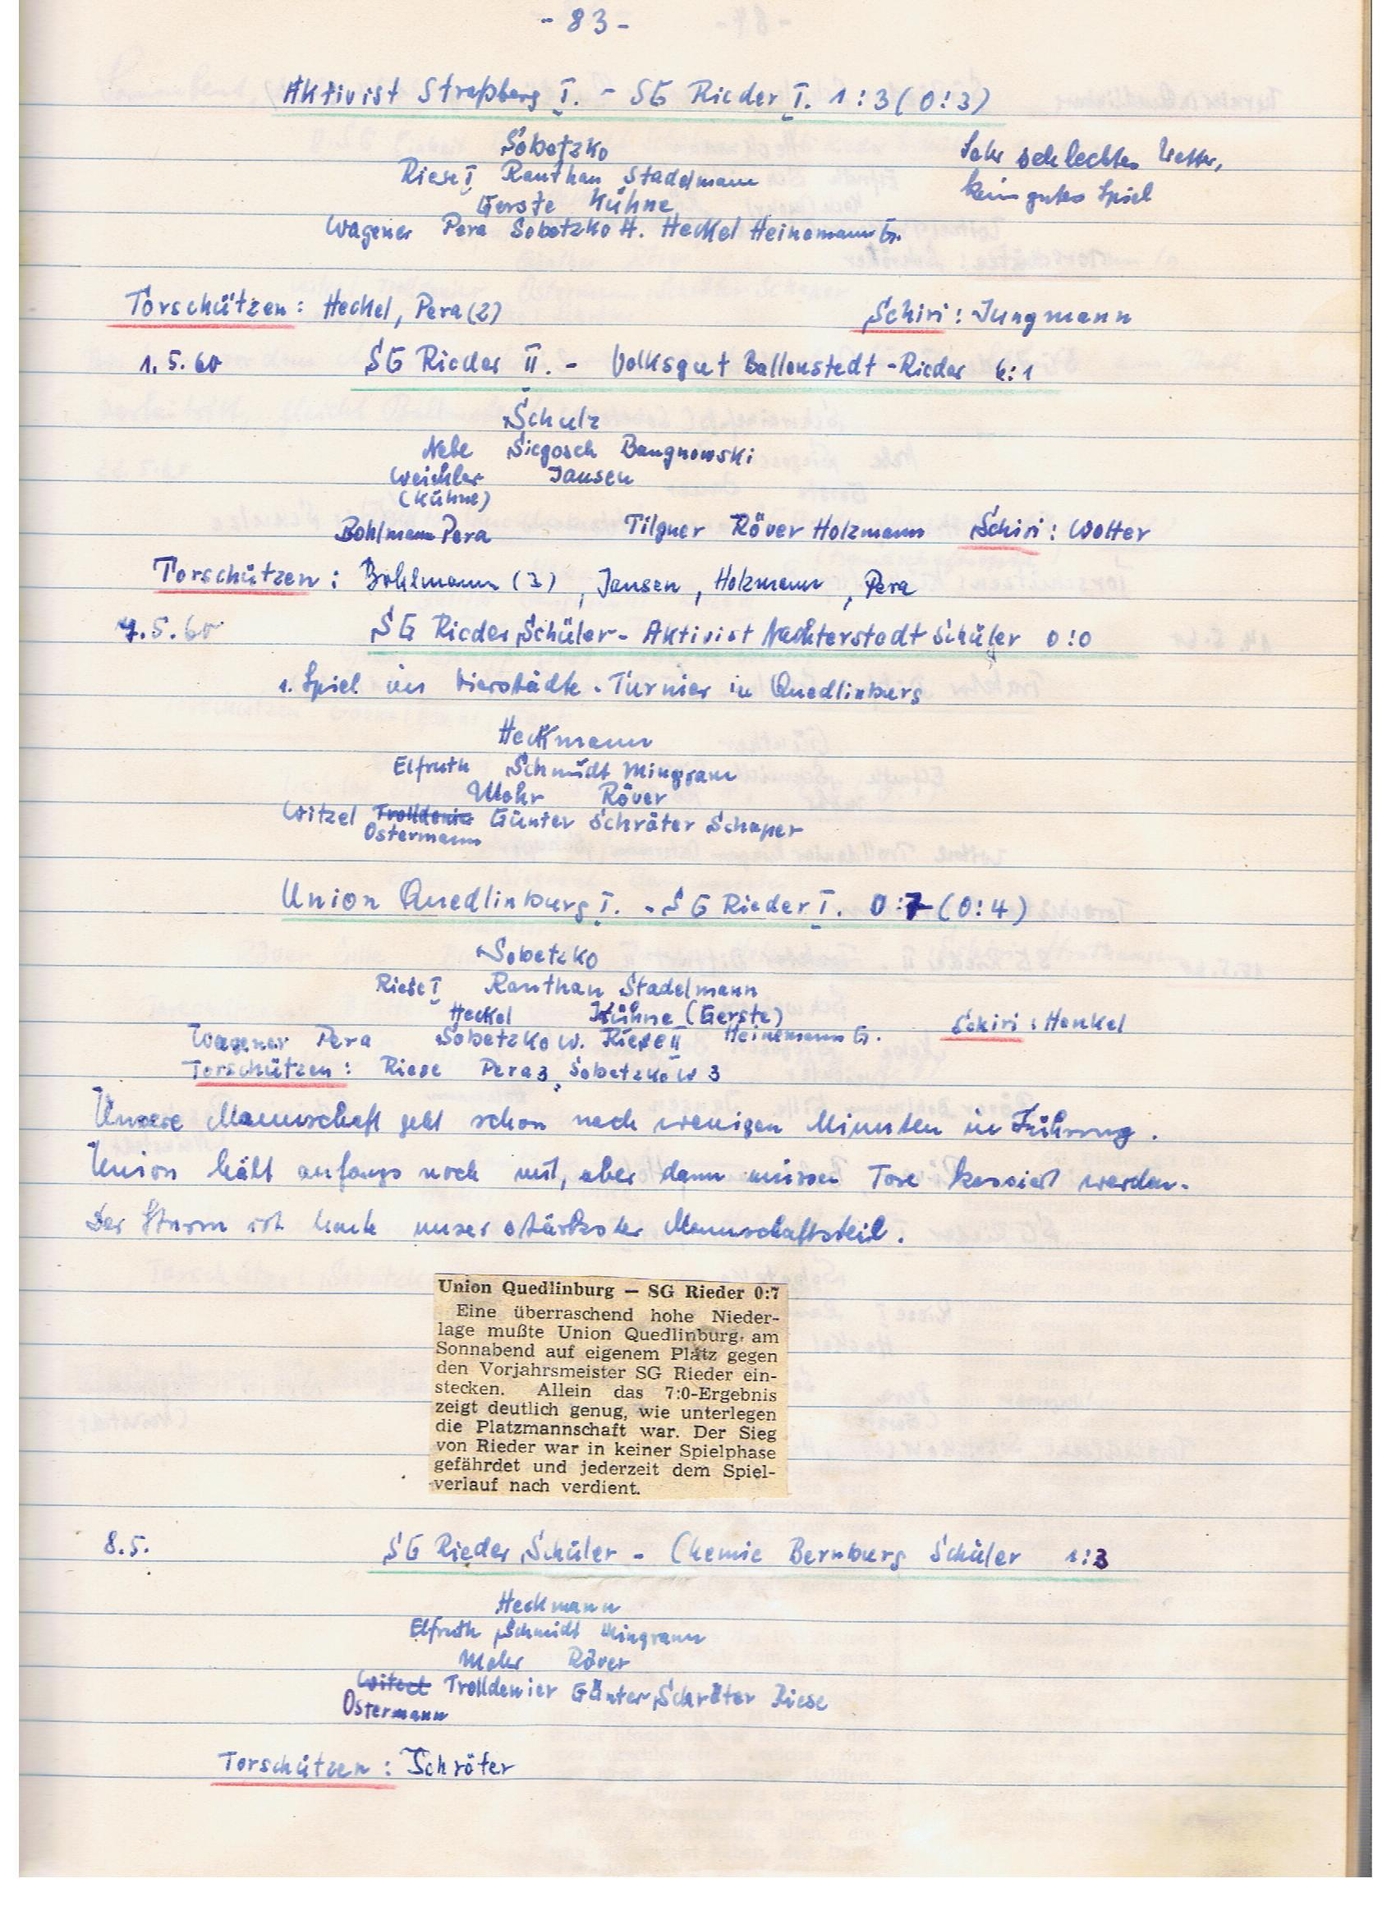 - 83 -
Aktivist Straßberg I. - SG Rieder I. 1:3 (0:3)
Sobetzko
Sehr schlechtes Wetter,
Riese I Ranthan Stadelmann
kein gutes Spiel
Gerste Kühne
Wagener Pera Sobetzko H. Heckel Heinemann G.
Torschützen: Heckel, Pera (2) Schiri: Jungmann
1.5.60 SG Rieder II. - Volksgut Ballenstedt-Rieder 6:1
Schulz
Nebe Siegosch Bangnowski
Weichler Jansen
(Kühne)
Bohlmann Pera Tilgner Röver Holzmann Schiri: Wotter
Torschützen: Bohlmann (3), Jansen, Holzmann, Pera
7.5.60 SG Rieder Schüler - Aktivist Nachterstedt Schüler 0:0
1. Spiel im Vierstädte-Turnier in Quedlinburg
Heckmann
Elfruth Schmidt Mingram
Mohr Röver
Witzel Trolldenier Günter Schröter Schaper
Ostermann
Union Quedlinburg I. - SG Rieder I. 0:7 (0:4)
Sobetzko
Riese I Ranthan Stadelmann
Heckel Kühne (Gerste)
Wagener Pera Sobetzko W. Riese II Heinemann G. Schiri: Henkel
Torschützen: Riese Pera 3, Sobetzko W 3
Unsere Mannschaft geht schon nach wenigen Minuten in Führung.
Union hält anfangs noch mit, aber dann müssen Tore kassiert werden.
Der Sturm ist heute unser stärkster Mannschaftsteil.
Union Quedlinburg — SG Rieder 0:7
Eine überraschend hohe Nieder-
lage mußte Union Quedlinburg am
Sonnabend auf eigenem Platz gegen
den Vorjahrsmeister SG Rieder ein-
stecken. Allein das 7:0-Ergebnis
zeigt deutlich genug, wie unterlegen
die Platzmannschaft war. Der Sieg
von Rieder war in keiner Spielphase
gefährdet und jederzeit dem Spiel-
verlauf nach verdient.
8.5. SG Rieder Schüler - Chemie Bernburg Schüler 1:3
Heckmann
Elfruth Schmidt Mingram
Mohr Röver
Witzel Trolldenier Günter Schröter Riese
Ostermann
Torschützen: Schröter